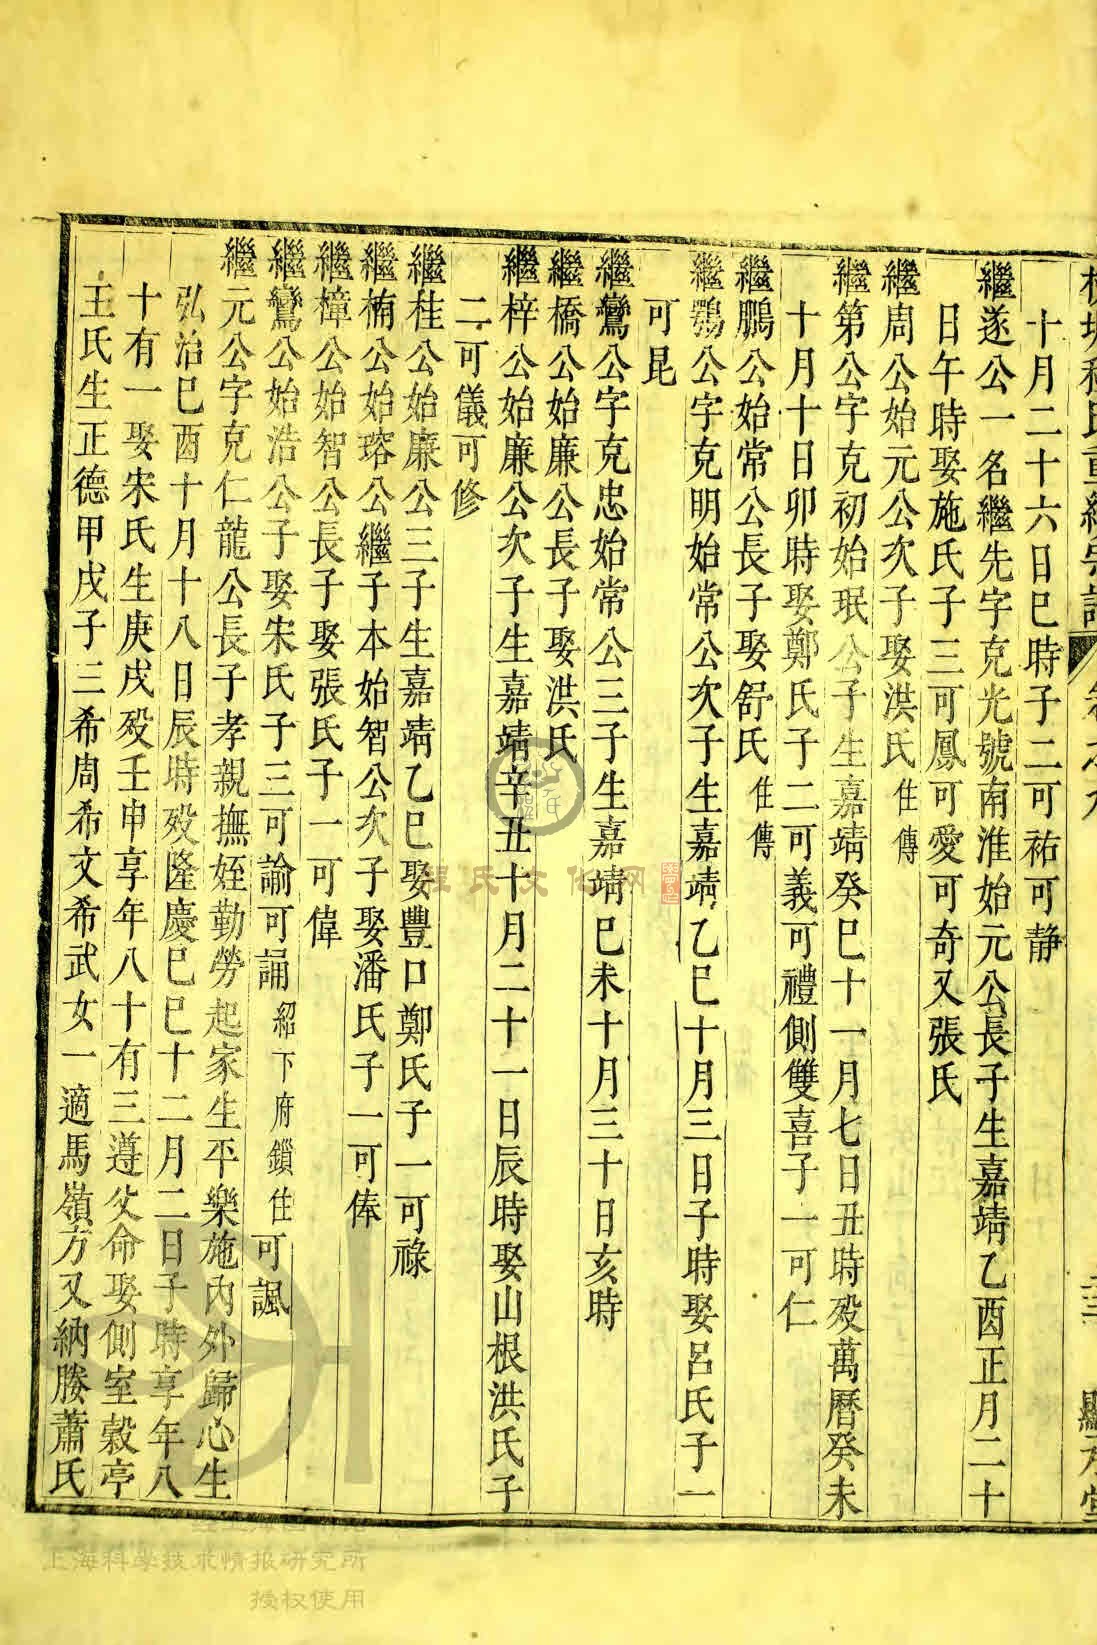 程氏重編宗譜 卷之九 三 顯承堂
十月二十六日巳時子二可祐可静
繼遂公一名繼先字克光號南淮始元公長子生嘉靖乙酉正月二十
日午時娶施氏子三可鳳可愛可奇又張氏
繼周公始元公次子娶洪氏 住傳
繼第公字克初始珉公子生嘉靖癸巳十一月七日丑時殁萬曆癸未
十月十日卯時娶鄭氏子二可義可禮側雙喜子一可仁
繼鵬公始常公長子娶舒氏 住傳
繼鶚公字克明始常公次子生嘉靖乙巳十月三日子時娶呂氏子一
可昆
繼鸞公字克忠始常公三子生嘉靖巳未十月三十日亥時
繼橋公始廉公長子娶洪氏
繼梓公始廉公次子生嘉靖辛丑十月二十一日辰時娶山根洪氏子
二可儀可修
繼桂公始廉公三子生嘉靖乙巳娶豐口鄭氏子一可祿
繼楠公始瑢公繼子本始智公次子娶潘氏子一可俸
繼樟公始智公長子娶張氏子一可偉
繼鸞公始浩公子娶宋氏子三可諭可誦 紹下府鎖住 可諷
繼元公字克仁龍公長子孝親撫姪勤勞起家生平樂施内外歸心生
弘治巳酉十月十八日辰時殁隆慶巳巳十二月二日子時享年八
十有一娶宋氏生庚戌殁壬申享年八十有三遵父命娶側室榖亭
王氏生正德甲戌子三希周希文希武女一適馬嶺方又納媵蕭氏
程氏文化网
上海科學技术情报研究所
授权使用